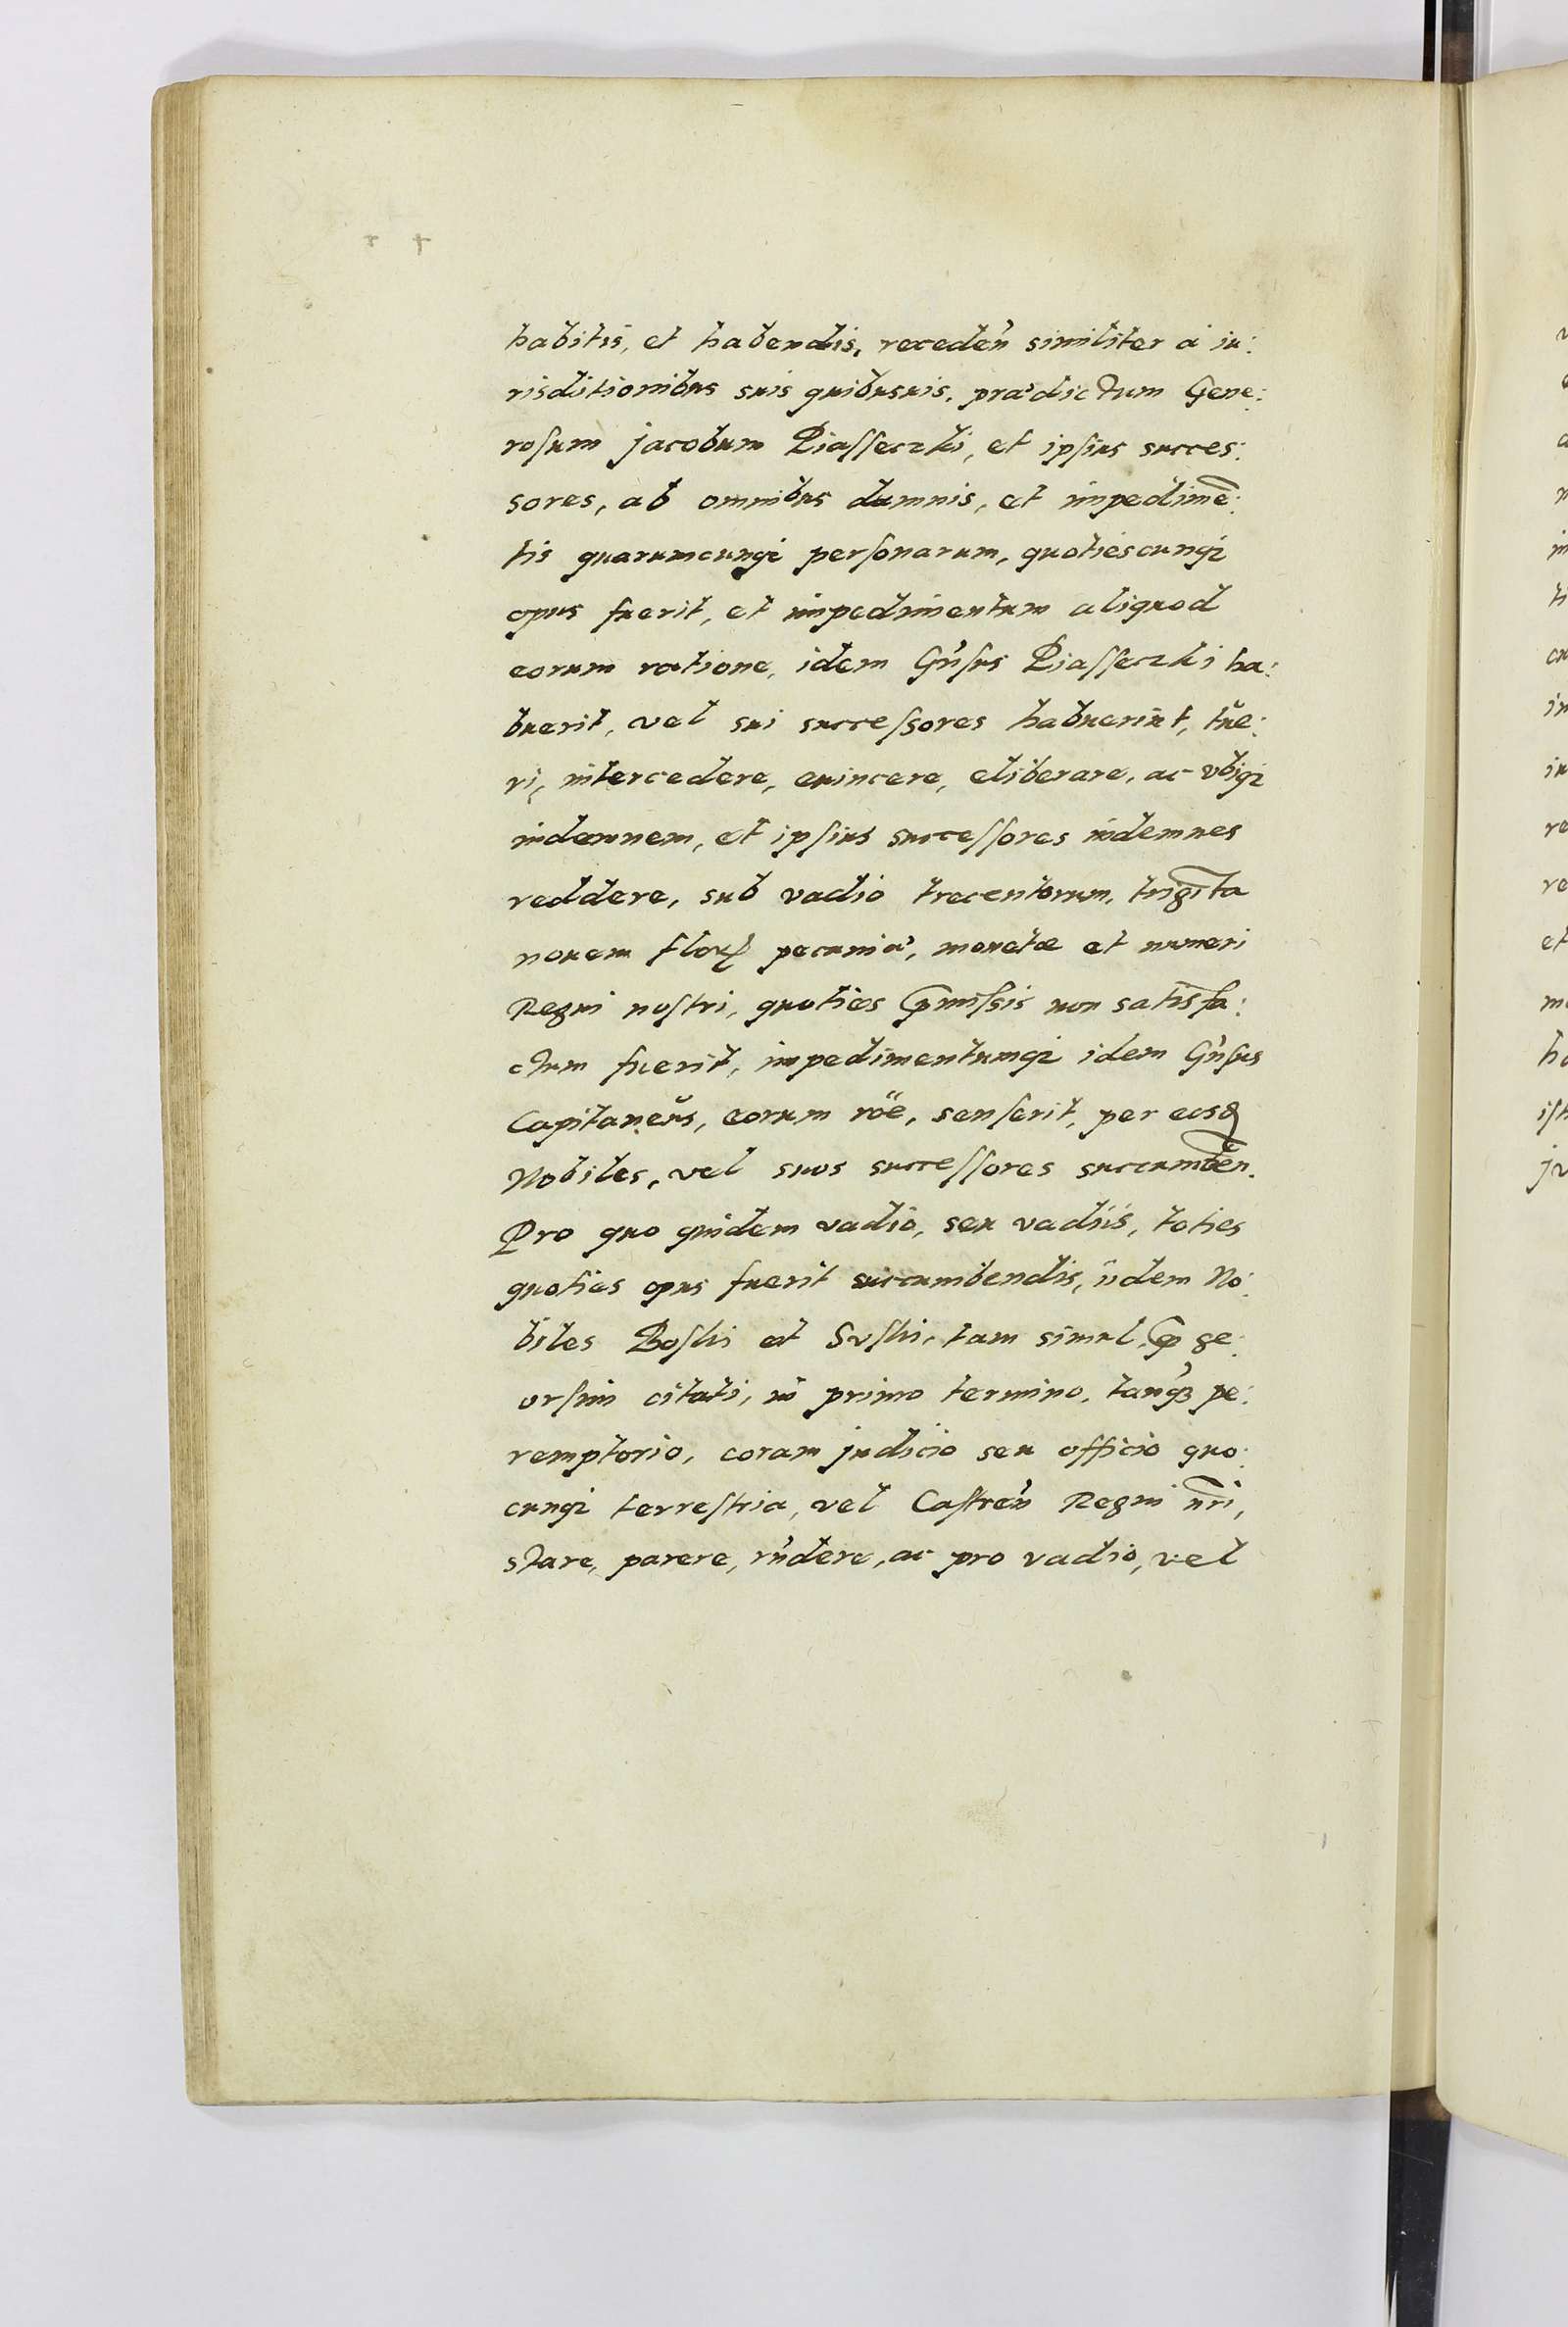 habitis, et habendis, receden̄ similiter à iu:
risditionibus suis quibusuis, prædictum Gene:
roſum Jacobum Piaſſeczki, et ipſius succes:
sores, ab omnibus damnis, et impedimē:
tis quarumcunq; perſonarum, quotiescunq;
opus fuerit, et impedimentum aliquod
eorum ratione, idem Gn̄ſus Piaſſeczki ha:
buerit, vel sui succeſſores habuerint, tue:
ri, intercedere, euincere, eliberare, ac vbiq;
indemnem, et ipſius succeſſores indemnes
reddere, sub vadio trecentorum, trigīta
nouem flor pecuniæ, monetæ et numeri
Regni noſtri, quoties p̄miſsis non satisfa:
ctum fuerit, impedimentumq; idem Gn̄ſus
Capitaneus, eorum rōe, senſerit, per eosd
Nobiles, vel suos succeſſores succumben̄.
Pro quo quidem vadio, seu vadiis, toties
quoties opus fuerit succumbendis, iidem No:
biles Boſki et Suſki, tam simul, q̄ se:
orſim citati, in primo termino, tanq̄ pe:
remptorio, coram judicio seu officio quo:
cunq; terreſtria, vel Caſtren̄ Regni nr̄i,
stare, parere, rn̄dere, ac pro vadio, vel